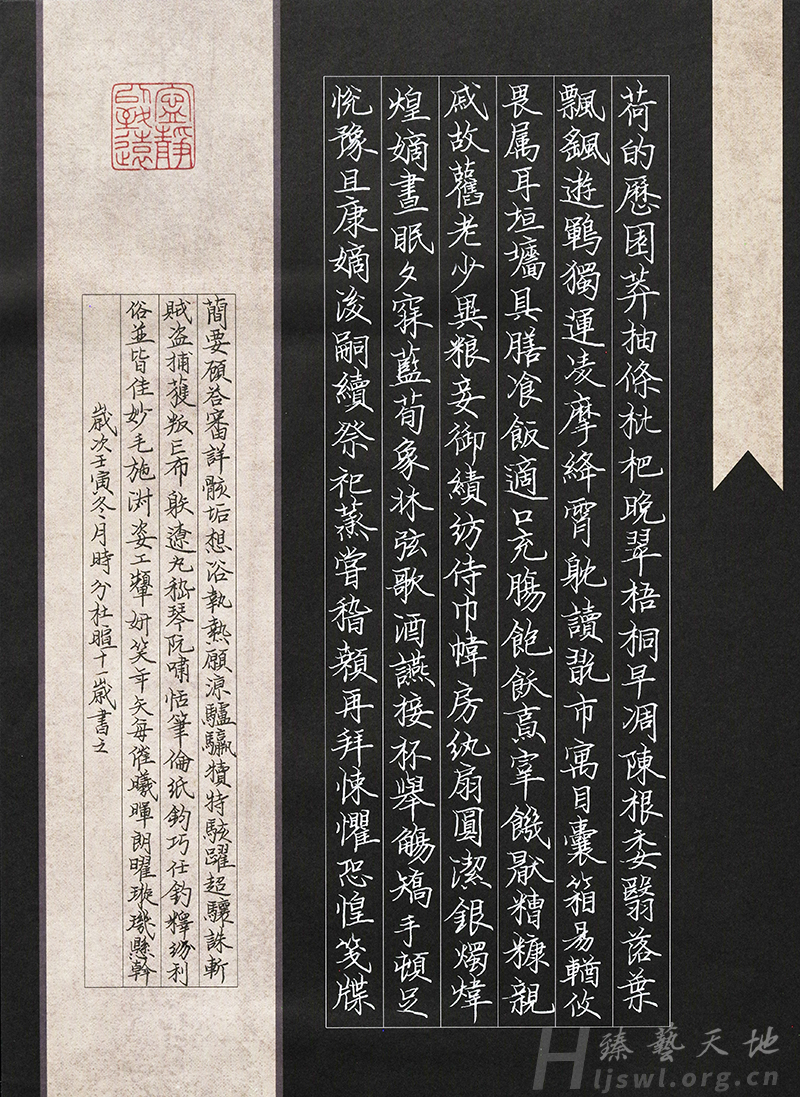 荷的歷園莽抽條枇杷晚翠梧桐早凋陳根委翳落葉
飄颻遊鵾獨運凌摩絳霄躭讀翫市寓目囊箱易輶攸
畏属耳垣墻具膳飡飯適口充腸飽飫烹宰饑厭糟糠親
戚故舊老少異粮妾御績紡侍巾帷房紈扇圓潔銀燭煒
煌嫡晝眠夕寐藍荀象床弦歌酒讌接杯舉觴矯手頓足
悅豫且康嫡後嗣續祭祀蒸嘗稽顙再拜悚懼恐惶箋牒
簡要顧答審詳骸垢想浴執熱願涼驢騾犢特駭躍超驤誅斬
賊盜捕獲叛亡布射遼丸嵇琴阮嘯恬筆倫紙鈞巧任釣釋紛利
俗並皆佳妙毛施淑姿工顰妍笑年矢每催曦暉朗曜璇璣懸斡
歲次壬寅冬月時分杜暄十一歲書之
寧靜致遠
臻藝天地
Hljswl.org.cn